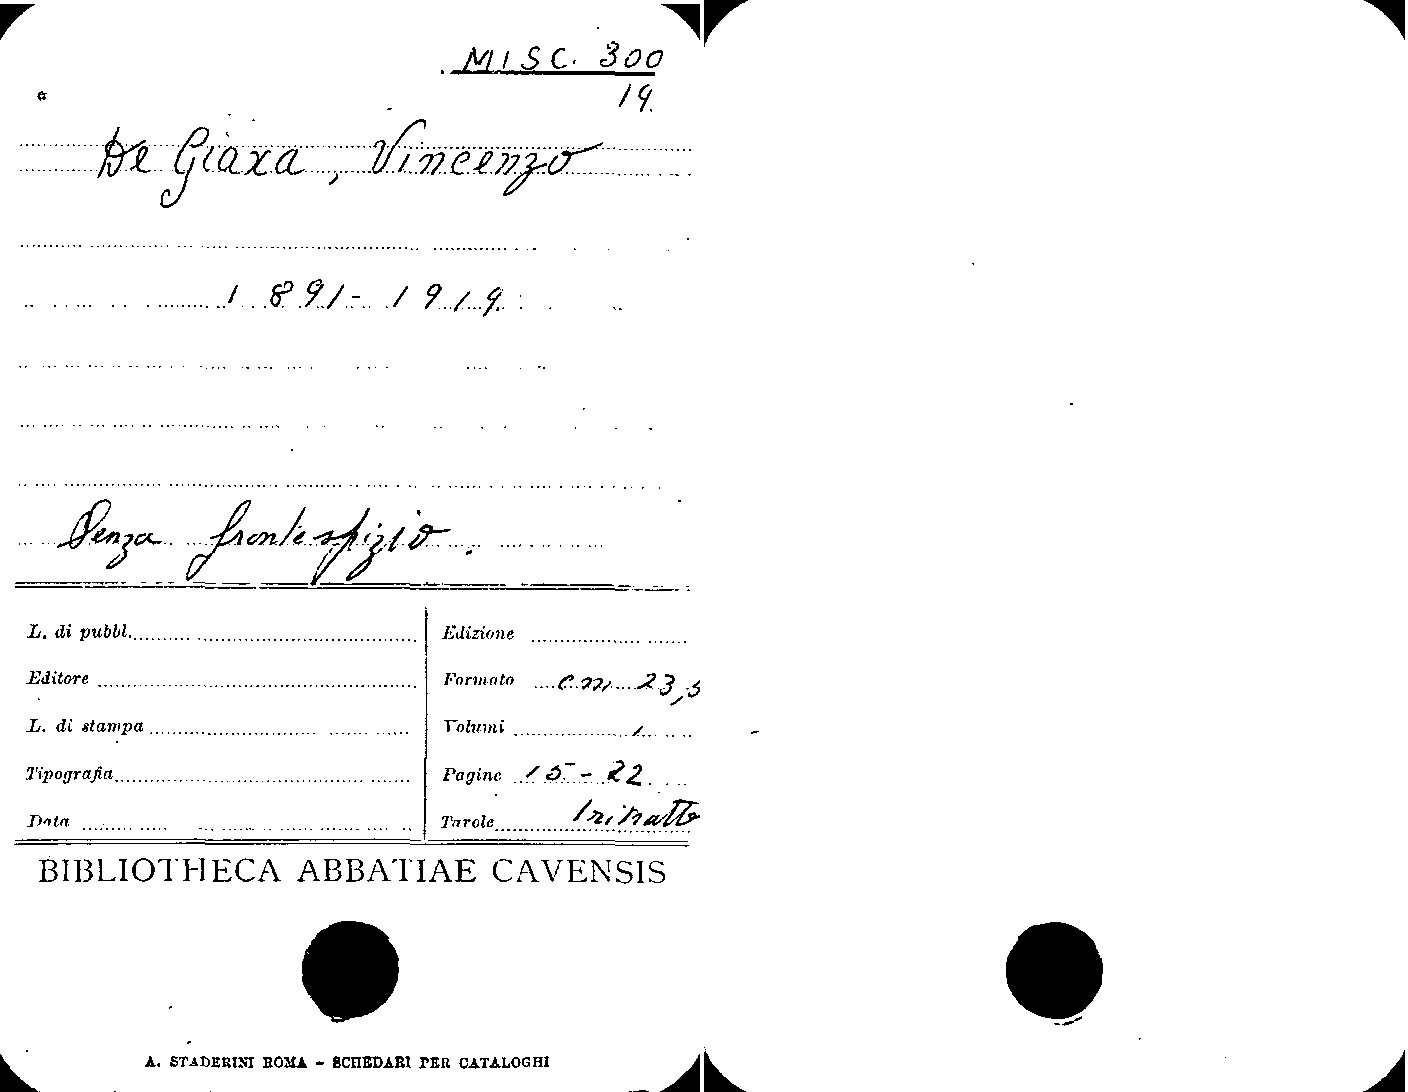 MISC. 300
19.
De Giaxa, Vincenzo
1891-1919.
Senza frontespizio.
L. di pubbl.
Edizione
Editore
Formato cm 23,5
L. di stampa
Volumi 1
Tipografia
Pagine 15-22
Data
Tavole 1 ritratto
BIBLIOTHECA ABBATIAE CAVENSIS
A. STADERINI ROMA - SCHEDARI PER CATALOGHI